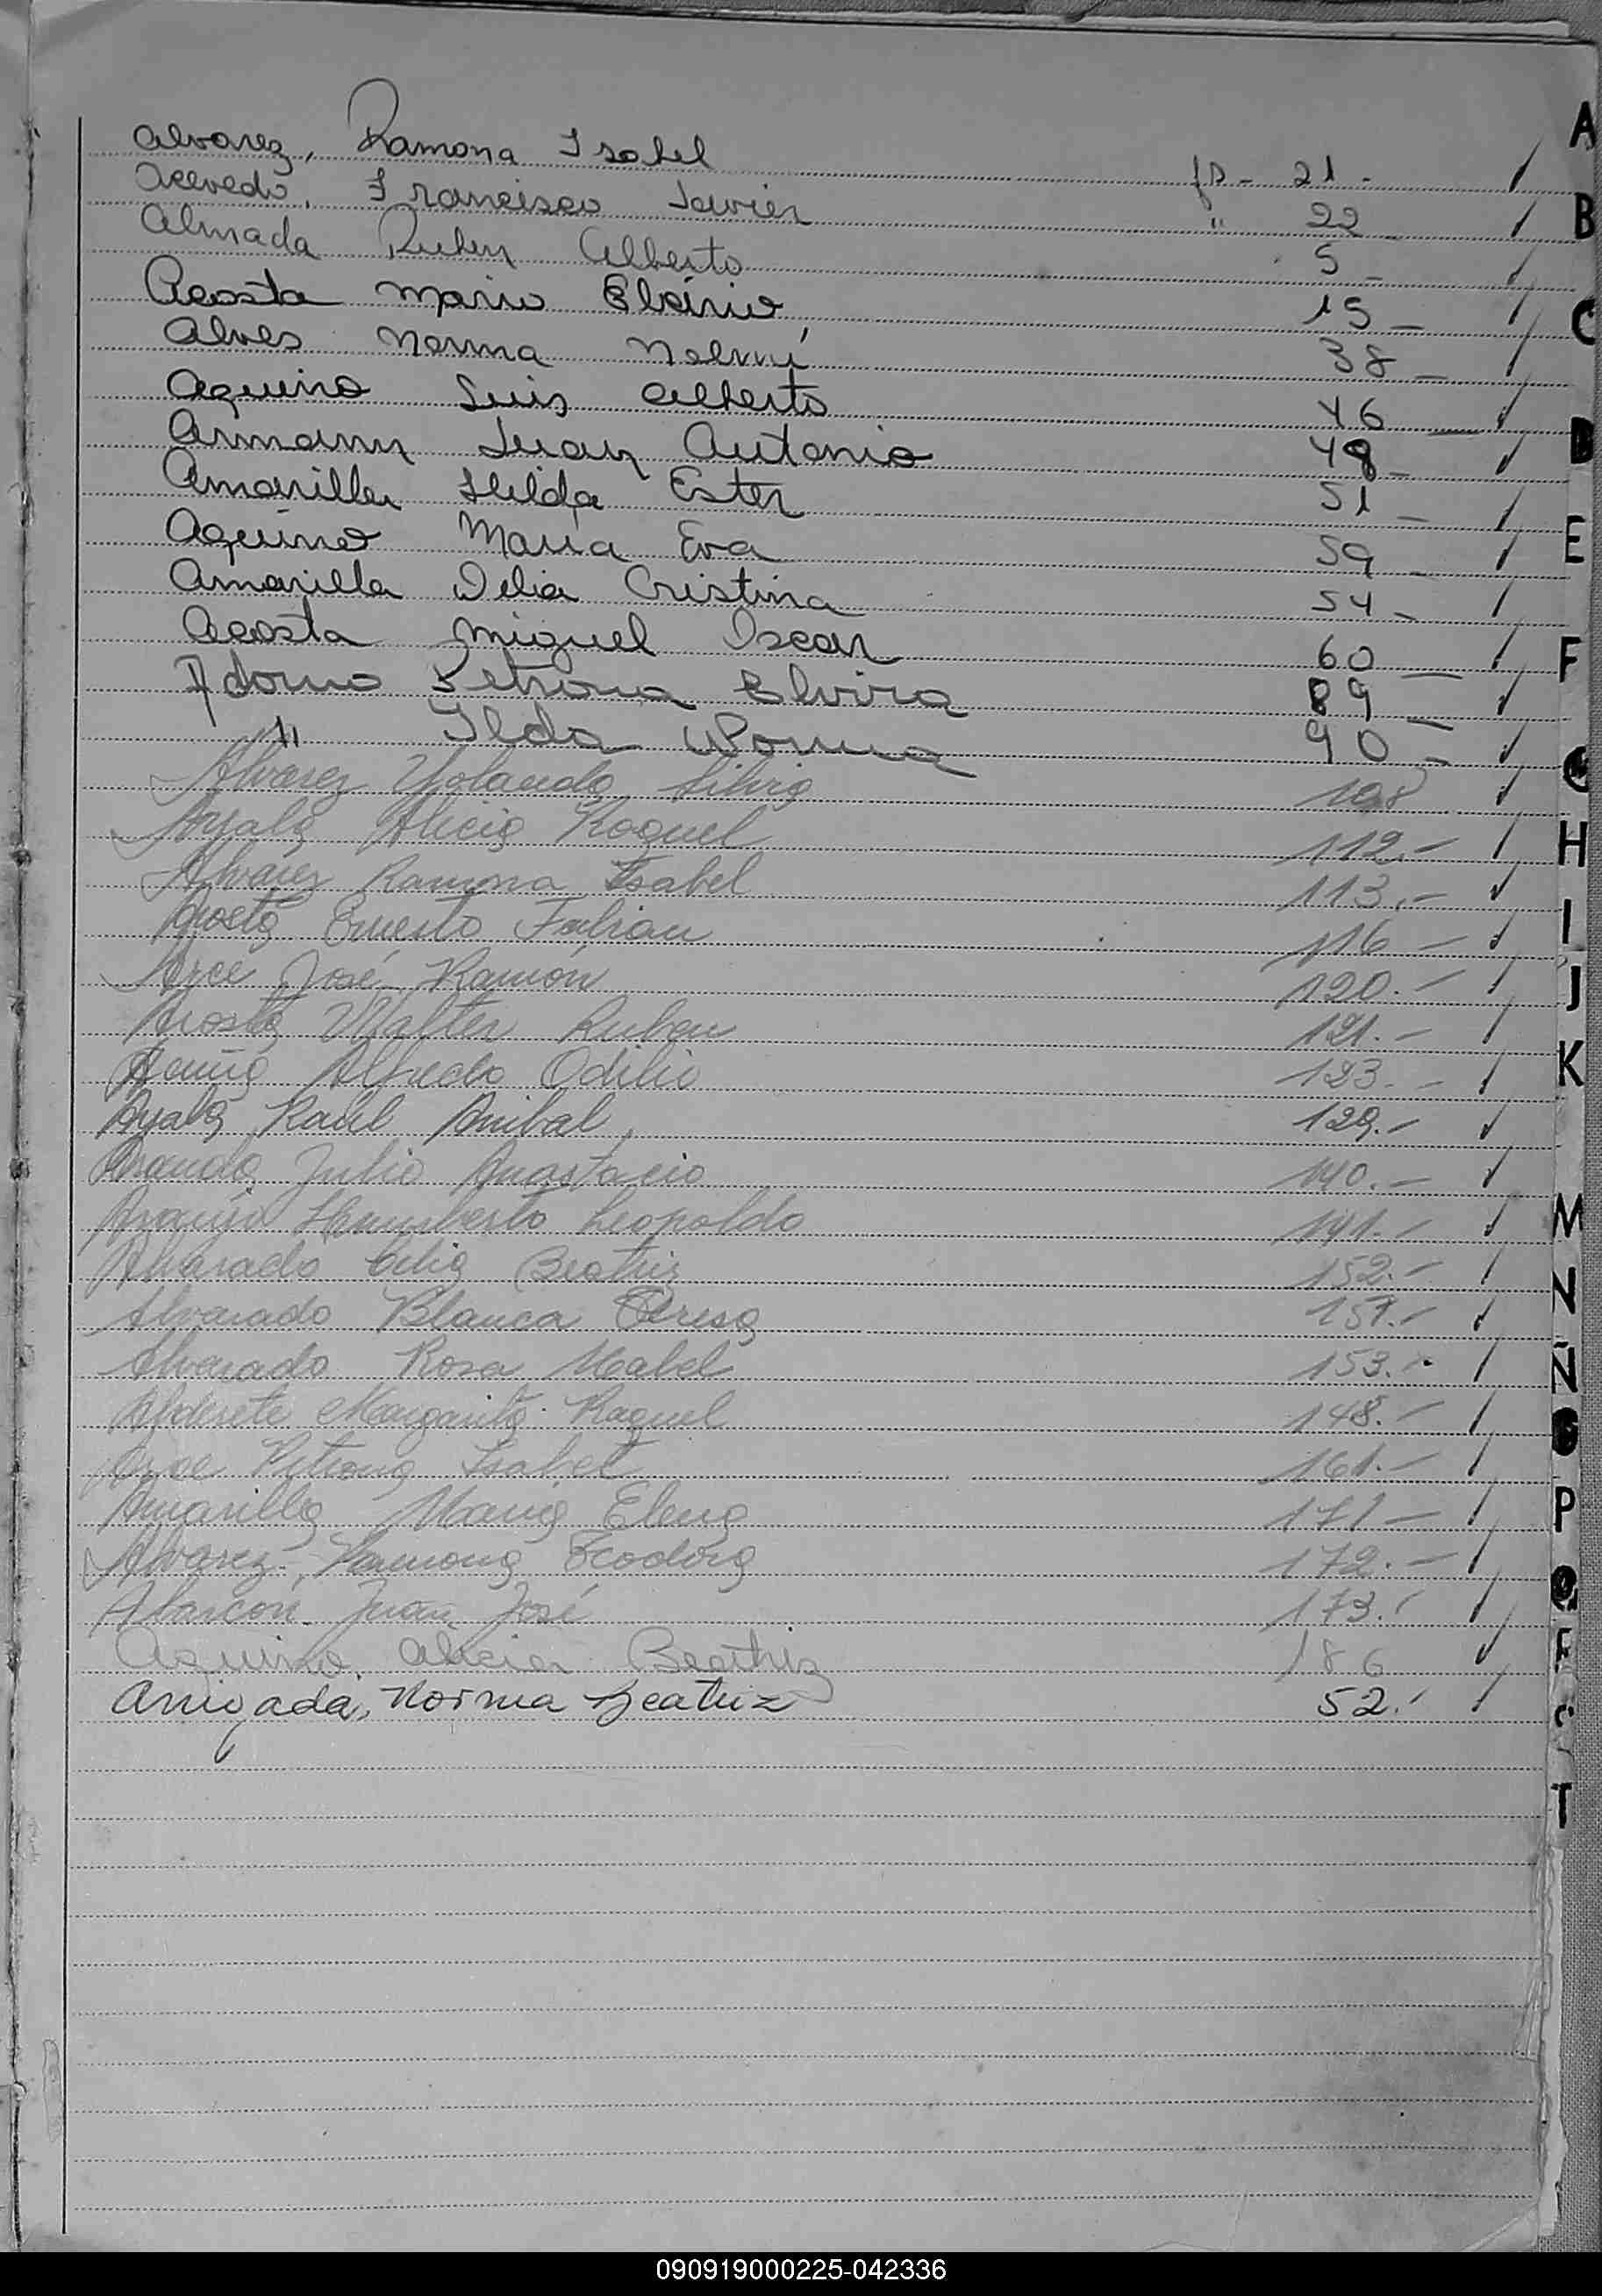 Alvarez, Ramona Isabel fs - 21 -
Acevedo, Francisco Javier " 22 -
Almada Ruben Alberto 5 -
Acosta Mario Elario 15 -
Alves Norma Noemí 38 -
Aquino Luis Alberto 46 -
Armann Juan Antonio 48 -
Amarilla Hilda Ester 51 -
Aquino Maria Eva 59 -
Amarilla Delia Cristina 54 -
Acosta Miguel Oscar 60 -
Adorno Petrona Elvira 89 -
" Ilda Norma 90 -
Alvarez Yolanda Silvia 108
Ayala Alicia Raquel 112.-
Alvarez Ramona Isabel 113.-
Acosta Ernesto Fabian 116 -
Arce José Ramón 120.-
Acosta Walter Ruben 121.-
Acuña Alfredo Odilio 123.-
Ayala Raúl Anibal 129.-
Aranda Julio Anastacio 140.-
Humberto Leopoldo 141.-
Alvarado Celia Beatriz 152.-
Alvarado Blanca Teresa 151.-
Alvarado Rosa Mabel 153.-
Alderete Margarita Raquel 148.-
Arce Petrona Isabel 161.-
Amarilla Maria Elena 171 -
Alvarez Ramona Teodora 172.-
Alarcón Juan José 173.-
Aquino, Alicia Beatriz 186
Arrigada, Norma Beatriz 52.-
A
B
C
D
E
F
G
H
I
J
K
M
N
Ñ
O
P
Q
R
S
T
090919000225-042336